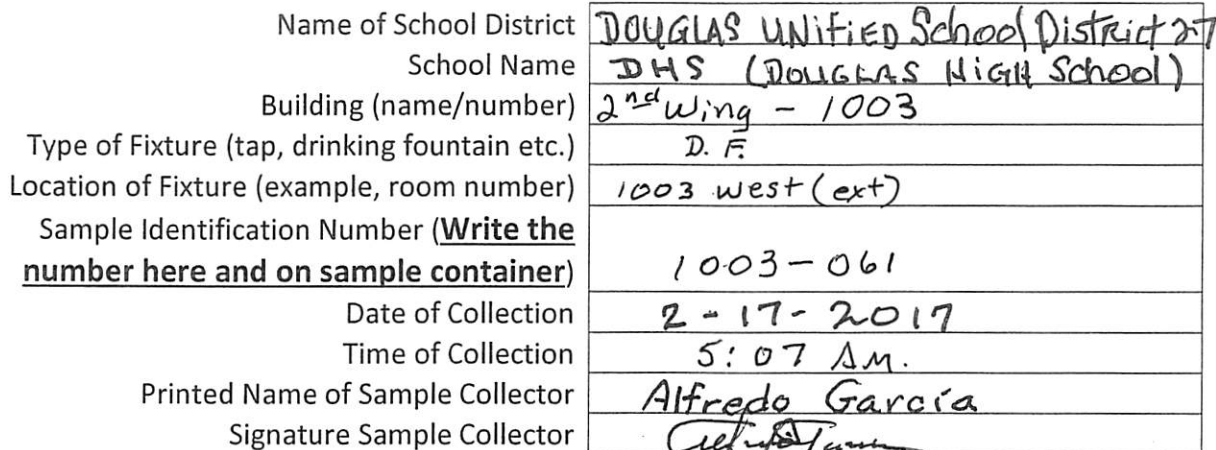 Name of School District DOUGLAS UNIFIED School District 27
School Name DHS (DOUGLAS HIGH School)
Building (name/number) 2nd Wing - 1003
Type of Fixture (tap, drinking fountain etc.) D. F.
Location of Fixture (example, room number) 1003 west (ext)
Sample Identification Number (Write the
number here and on sample container) 1003-061
Date of Collection 2-17-2017
Time of Collection 5:07 AM.
Printed Name of Sample Collector Alfredo García
Signature Sample Collector